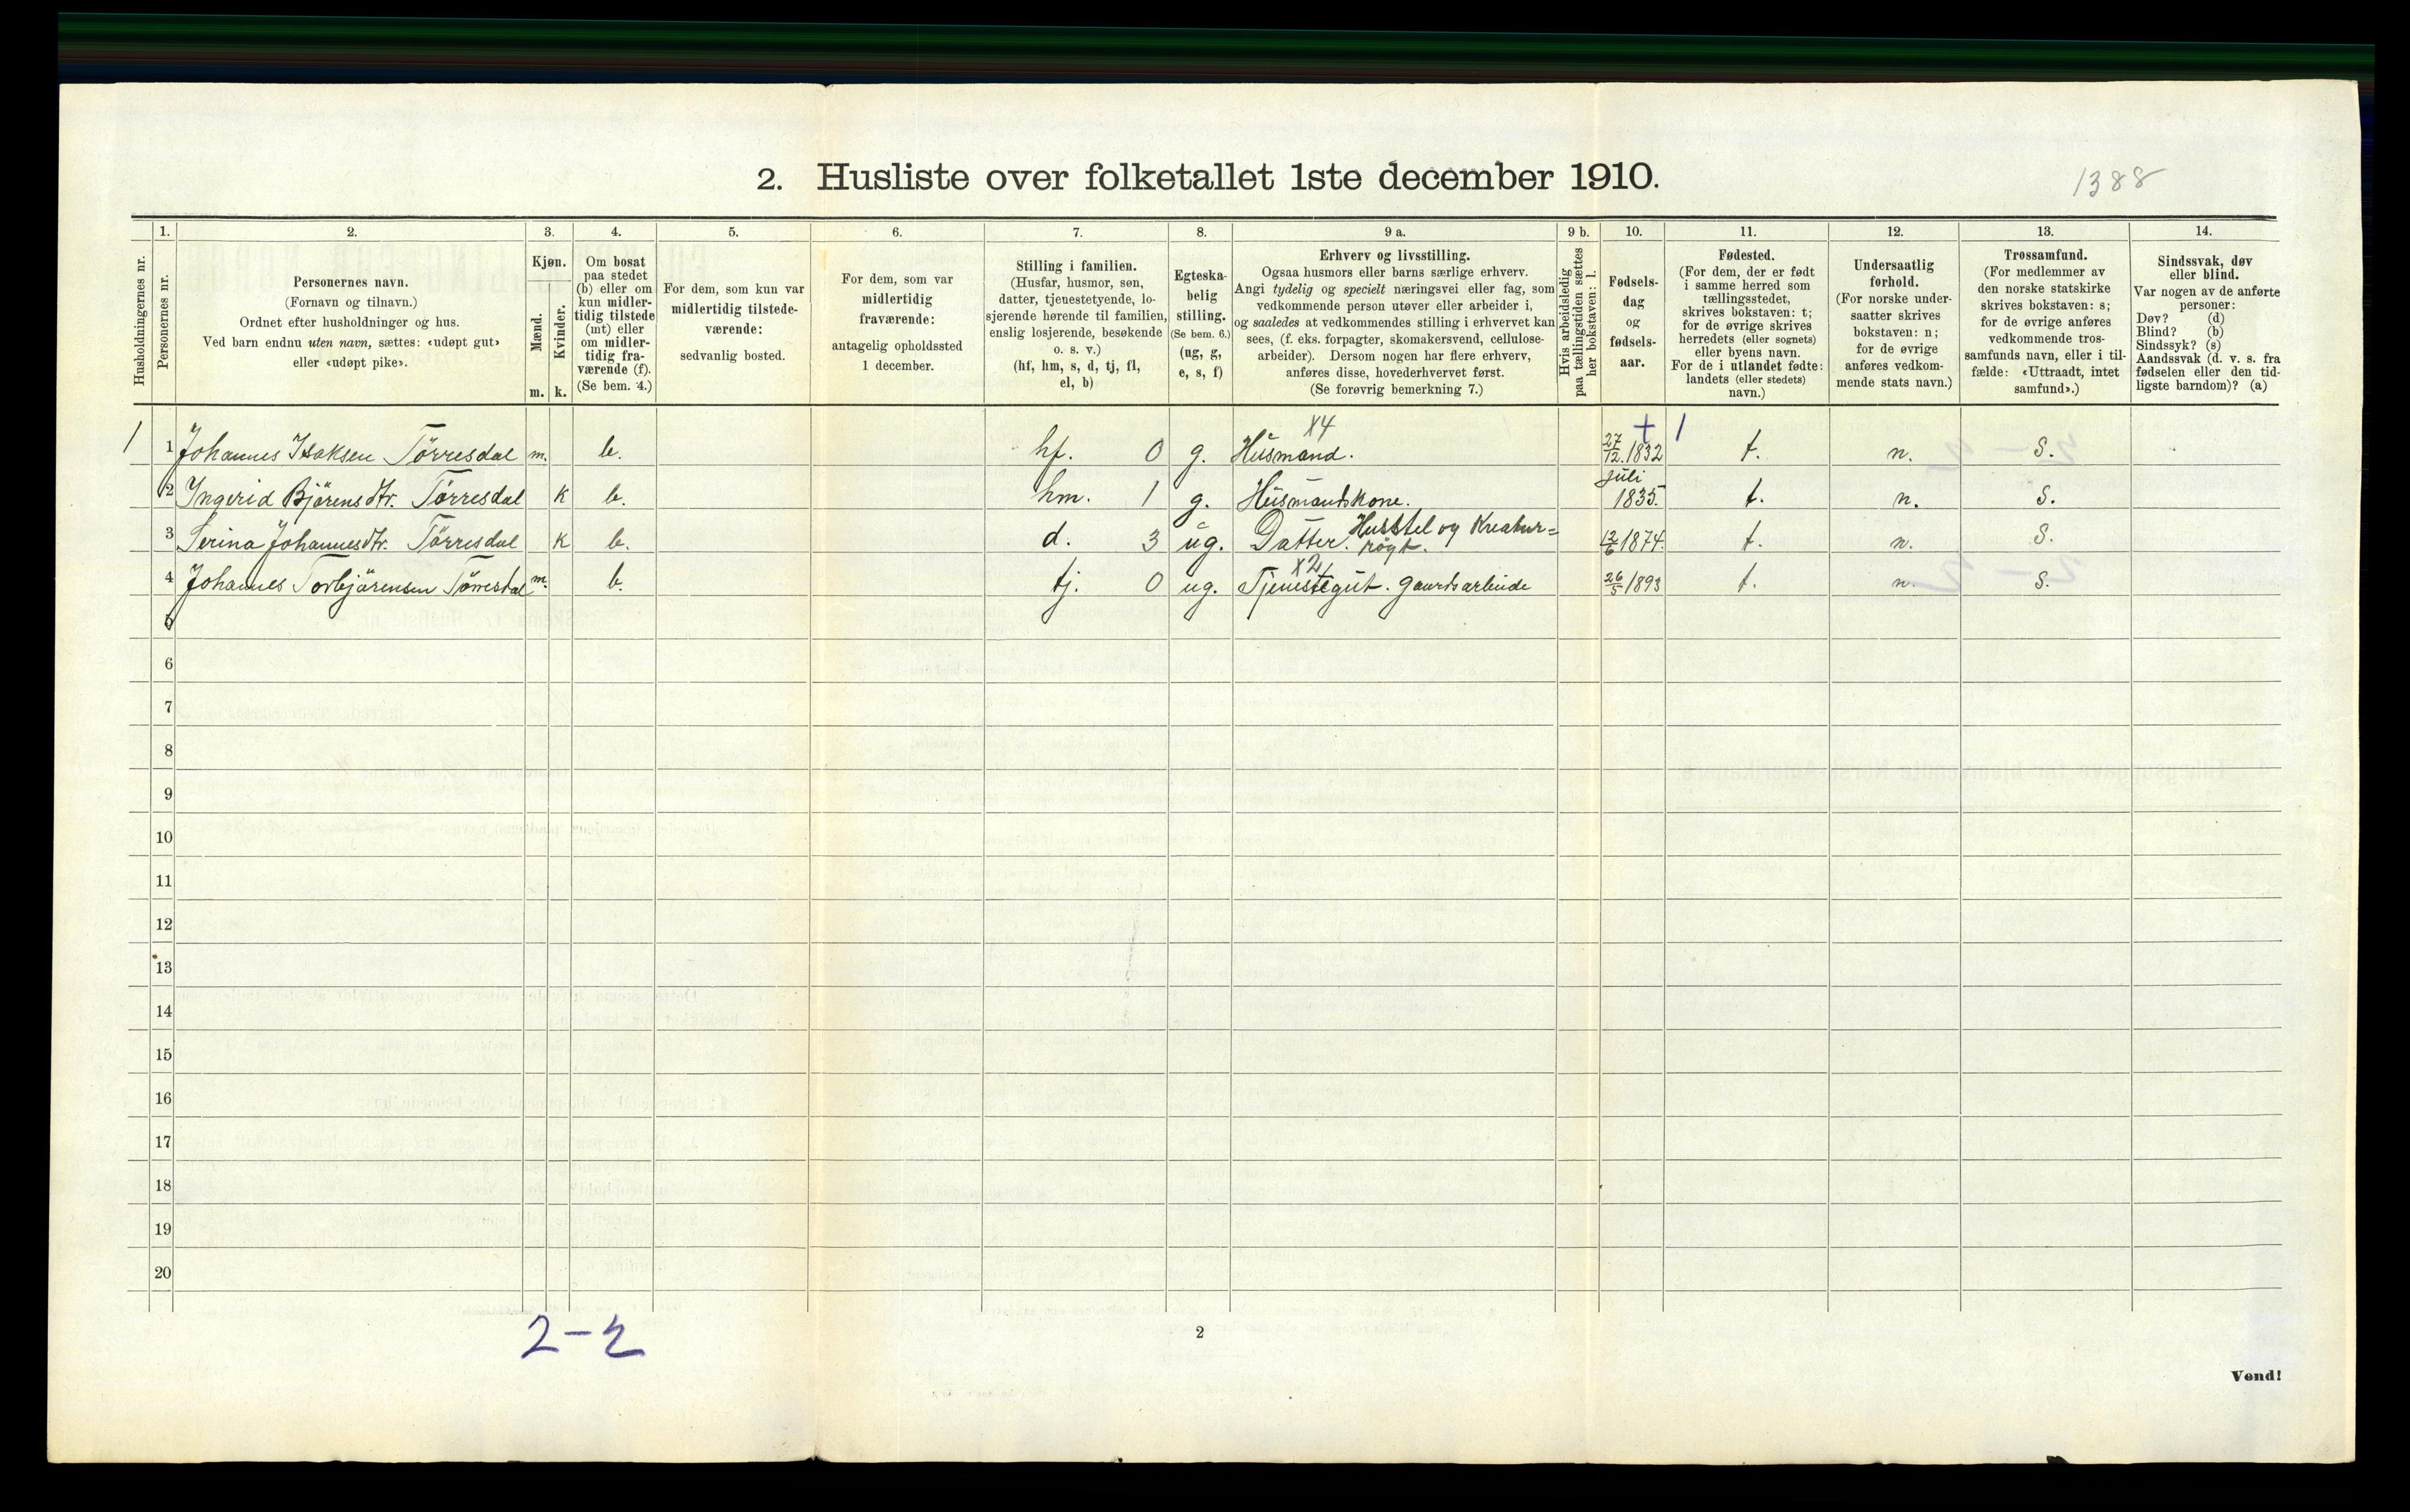 2. Husliste over folketallet 1ste december 1910.
1388
Husholdningernes nr.
1.
Personernes nr.
2.
Personernes navn.
(Fornavn og tilnavn.)
Ordnet efter husholdninger og hus.
Ved barn endnu uten navn, sættes: «udøpt gut»
eller «udøpt pike».
3.
Kjøn.
Mænd.
Kvinder.
m. k.
4.
Om bosat
paa stedet
(b) eller om
kun midler-
tidig tilstede
(mt) eller
om midler-
tidig fra-
værende (f).
(Se bem. 4.)
5.
For dem, som kun var
midlertidig tilstede-
værende:
sedvanlig bosted.
6.
For dem, som var
midlertidig
fraværende:
antagelig opholdssted
1 december.
7.
Stilling i familien.
(Husfar, husmor, søn,
datter, tjenestetyende, lo-
sjerende hørende til familien,
enslig losjerende, besøkende
o. s. v.)
(hf, hm, s, d, tj, fl,
el, b)
8.
Egteska-
belig
stilling.
(Se bem. 6.)
(ug, g,
e, s, f)
9 a.
Erhverv og livsstilling.
Ogsaa husmors eller barns særlige erhverv.
Angi tydelig og specielt næringsvei eller fag, som
vedkommende person utøver eller arbeider i,
og saaledes at vedkommendes stilling i erhvervet kan
sees, (f. eks. forpagter, skomakersvend, cellulose-
arbeider). Dersom nogen har flere erhverv,
anføres disse, hovederhvervet først.
(Se forøvrig bemerkning 7.)
9 b.
Hvis arbeidsledig
paa tællingstiden sættes
her bokstaven: l.
10.
Fødsels-
dag
og
fødsels-
aar.
11.
Fødested.
(For dem, der er født
i samme herred som
tællingsstedet,
skrives bokstaven: t;
for de øvrige skrives
herredets (eller sognets)
eller byens navn.
For de i utlandet fødte:
landets (eller stedets)
navn.)
12.
Undersaatlig
forhold.
(For norske under-
saatter skrives
bokstaven: n;
for de øvrige
anføres vedkom-
mende stats navn.)
13.
Trossamfund.
(For medlemmer av
den norske statskirke
skrives bokstaven: s;
for de øvrige anføres
vedkommende tros-
samfunds navn, eller i til-
fælde: «Uttraadt, intet
samfund».)
14.
Sindssvak, døv
eller blind.
Var nogen av de anførte
personer:
Døv? (d)
Blind? (b)
Sindssyk? (s)
Aandssvak (d. v. s. fra
fødselen eller den tid-
ligste barndom)? (a)
X4 + 1
1 1 Johannes Isaksen Törresdal m. b. hf. 0 g. Husmand. 27/12.1832 t. n. S.
2 Ingerid Björensdtr. Törresdal k b. hm. 1 g. Husmandskone. Juli 1835. t. n. S.
3 Serina Johannesdtr. Törresdal k b. d. 3 ug. Datter. Husstel og Kreatur=
røgt. 12/6 1874. t. n. S.
X2
4 Johannes Torbjörensen Törresdal m. b. tj. 0 ug. Tjenestegut. Gaardsarbeide 26/5 1893 t. n. S.
5
6
7
8
9
10
11
12
13
14
15
16
17
18
19
20
2-2
2
Vend!